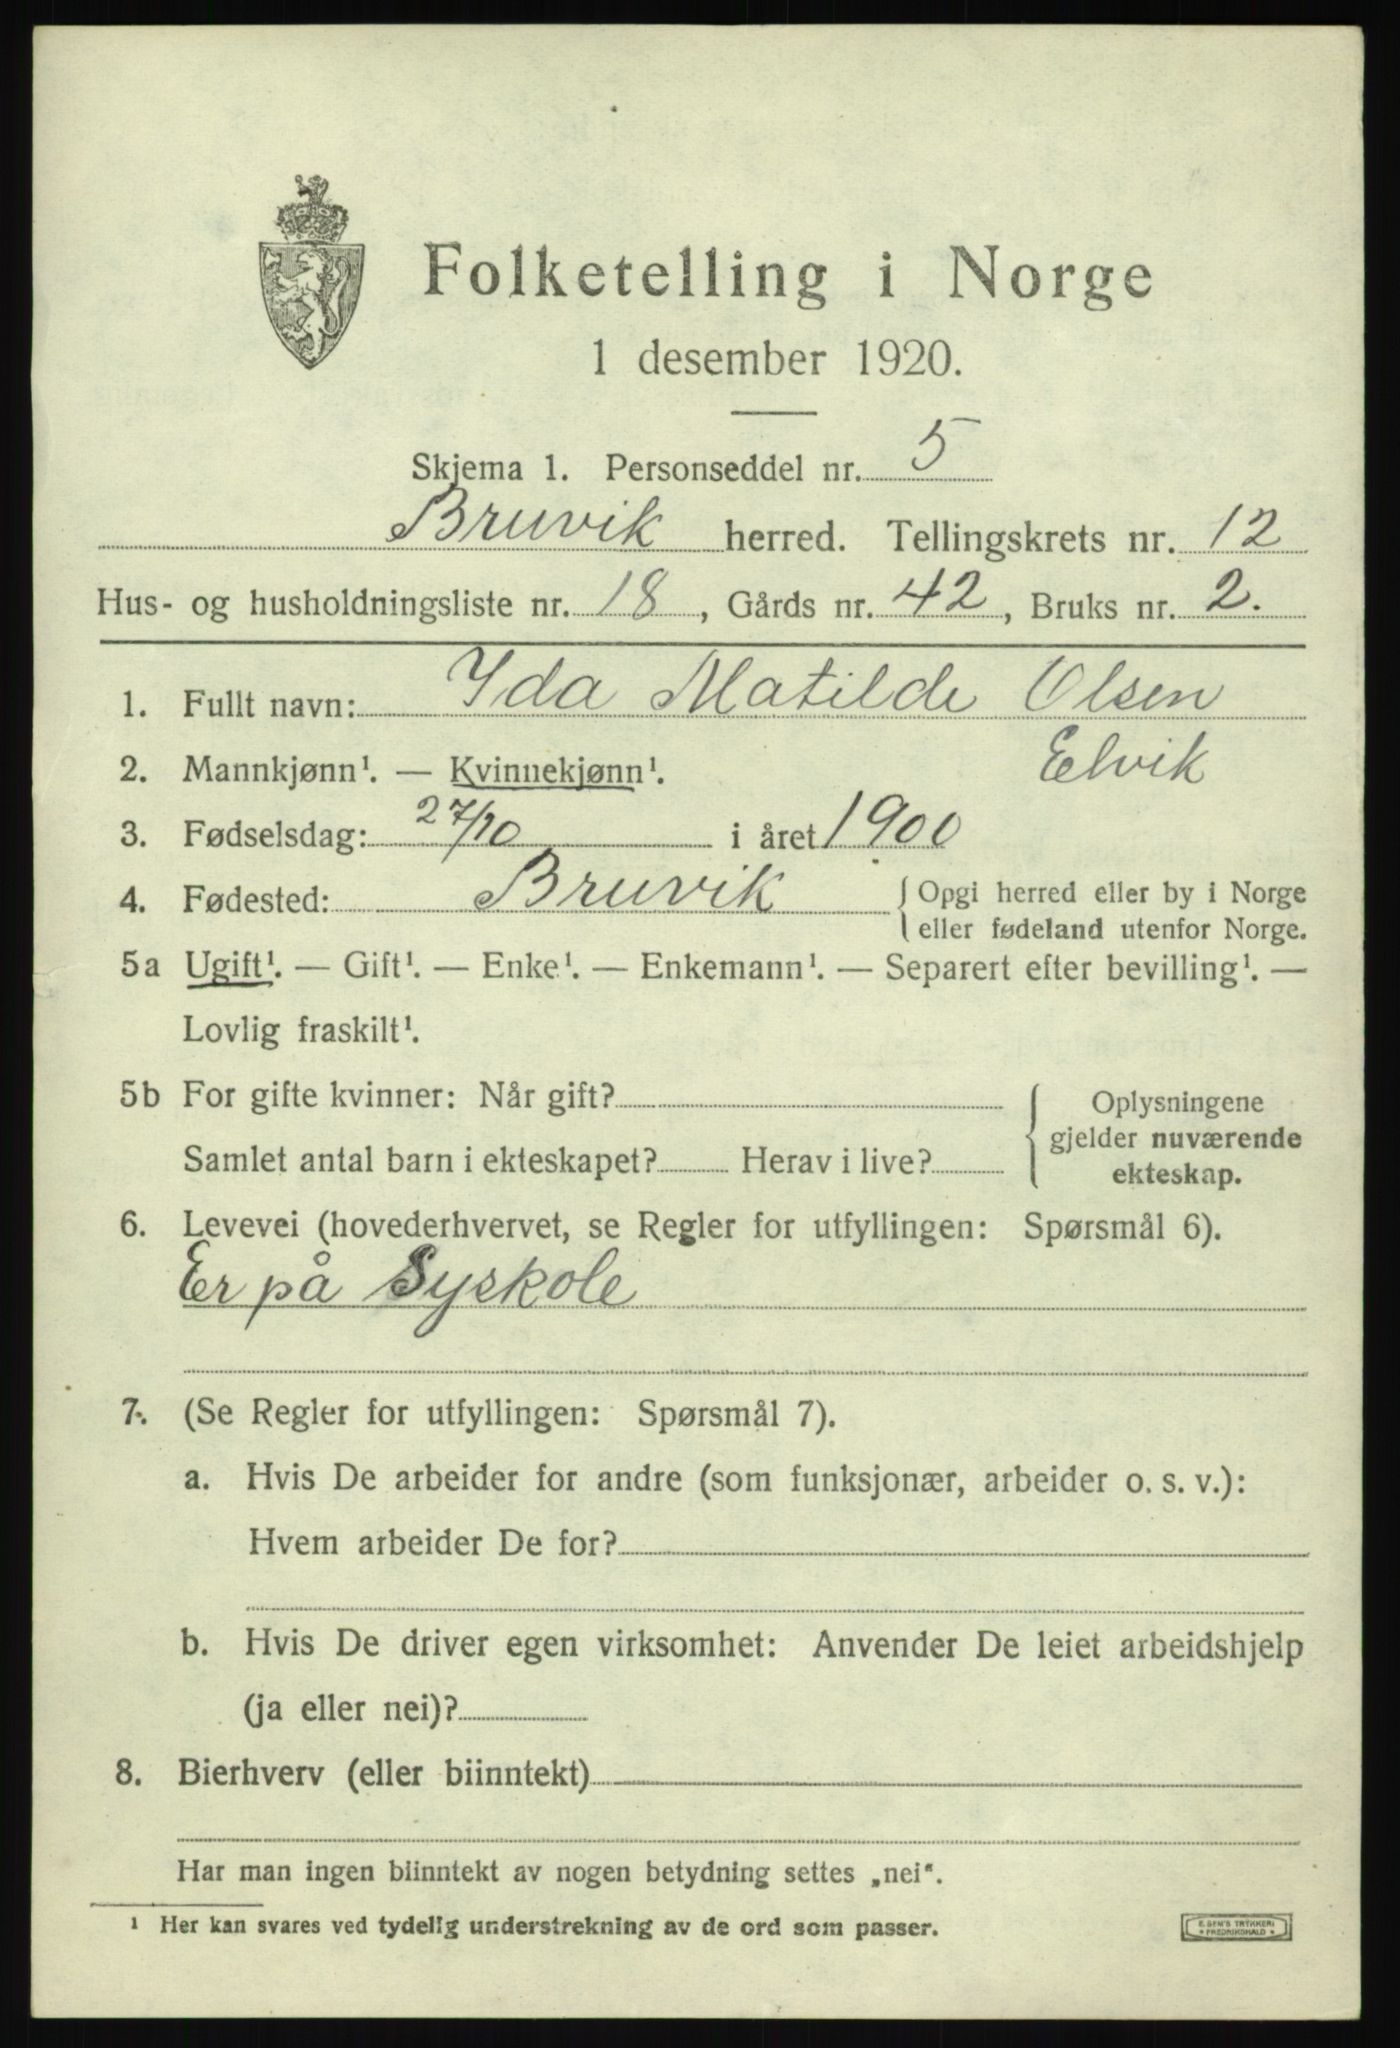 Folketelling i Norge
1 desember 1920.
Skjema 1. Personseddel nr. 5
Bruvik herred. Tellingskrets nr. 12
Hus- og husholdningsliste nr. 18, Gårds nr. 42, Bruks nr. 2.
1. Fullt navn: Ida Matilde Olsen
Elvik
2. Mannkjønn¹. — Kvinnekjønn¹.
3. Fødselsdag: 27/10 i året 1900
4. Fødested: Bruvik { Opgi herred eller by i Norge
eller fødeland utenfor Norge.
5a Ugift¹. — Gift¹. — Enke¹. — Enkemann¹. — Separert efter bevilling¹. —
Lovlig fraskilt¹.
5b For gifte kvinner: Når gift? { Oplysningene
gjelder nuværende
Samlet antal barn i ekteskapet? Herav i live?
ekteskap.
6. Levevei (hovederhvervet, se Regler for utfyllingen: Spørsmål 6).
Er på Syskole
7. (Se Regler for utfyllingen: Spørsmål 7).
a. Hvis De arbeider for andre (som funksjonær, arbeider o. s. v.):
Hvem arbeider De for?
b. Hvis De driver egen virksomhet: Anvender De leiet arbeidshjelp
(ja eller nei)?
8. Bierhverv (eller biinntekt)
Har man ingen biinntekt av nogen betydning settes „nei“.
¹ Her kan svares ved tydelig understrekning av de ord som passer.
E. SEM'S TRYKKERI
FREDRIKSHALD